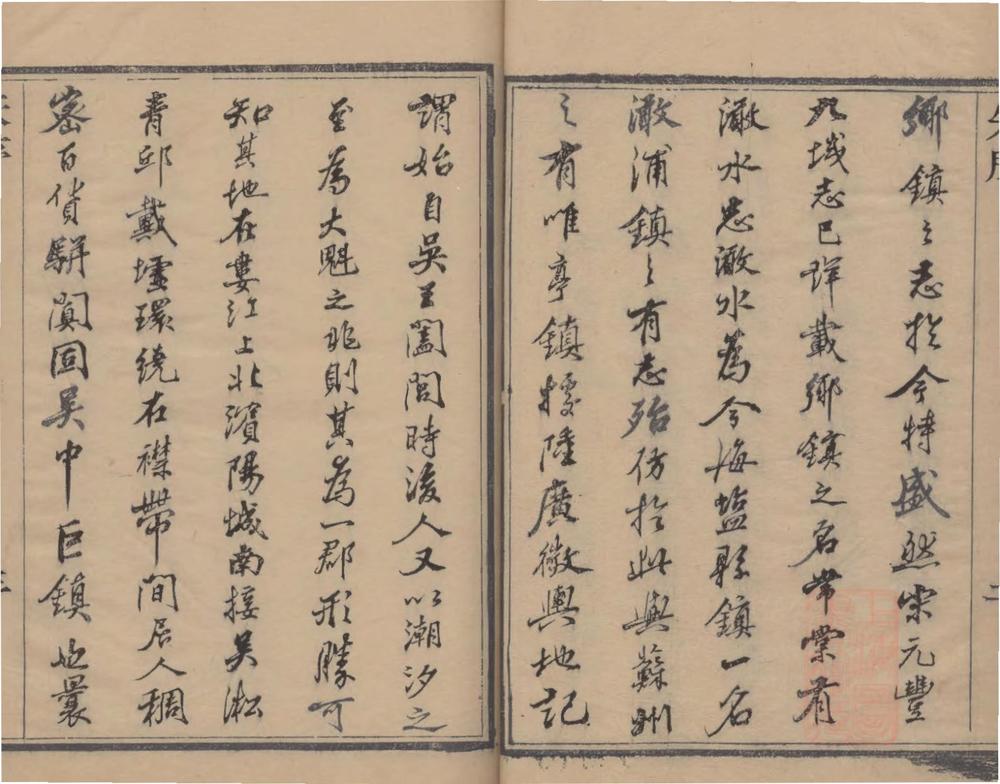 鄉鎮之志於今特盛然宋元豐
九域志已詳載鄉鎮之名常棠有
澉水志澉水爲今海盐縣鎮一名
澉浦鎮之有志殆仿於此與蘇州
之有唯亭鎮據陸廣微輿地記
謂始自吳王闔閭時後人又以潮汐之
至為大魁之兆則其為一郡形勝可
知其地在婁江上北濱陽城南接吳淞
青邱戴墟環繞在襟帶間居人稠
密百貨駢闐固吳中巨鎮也曩